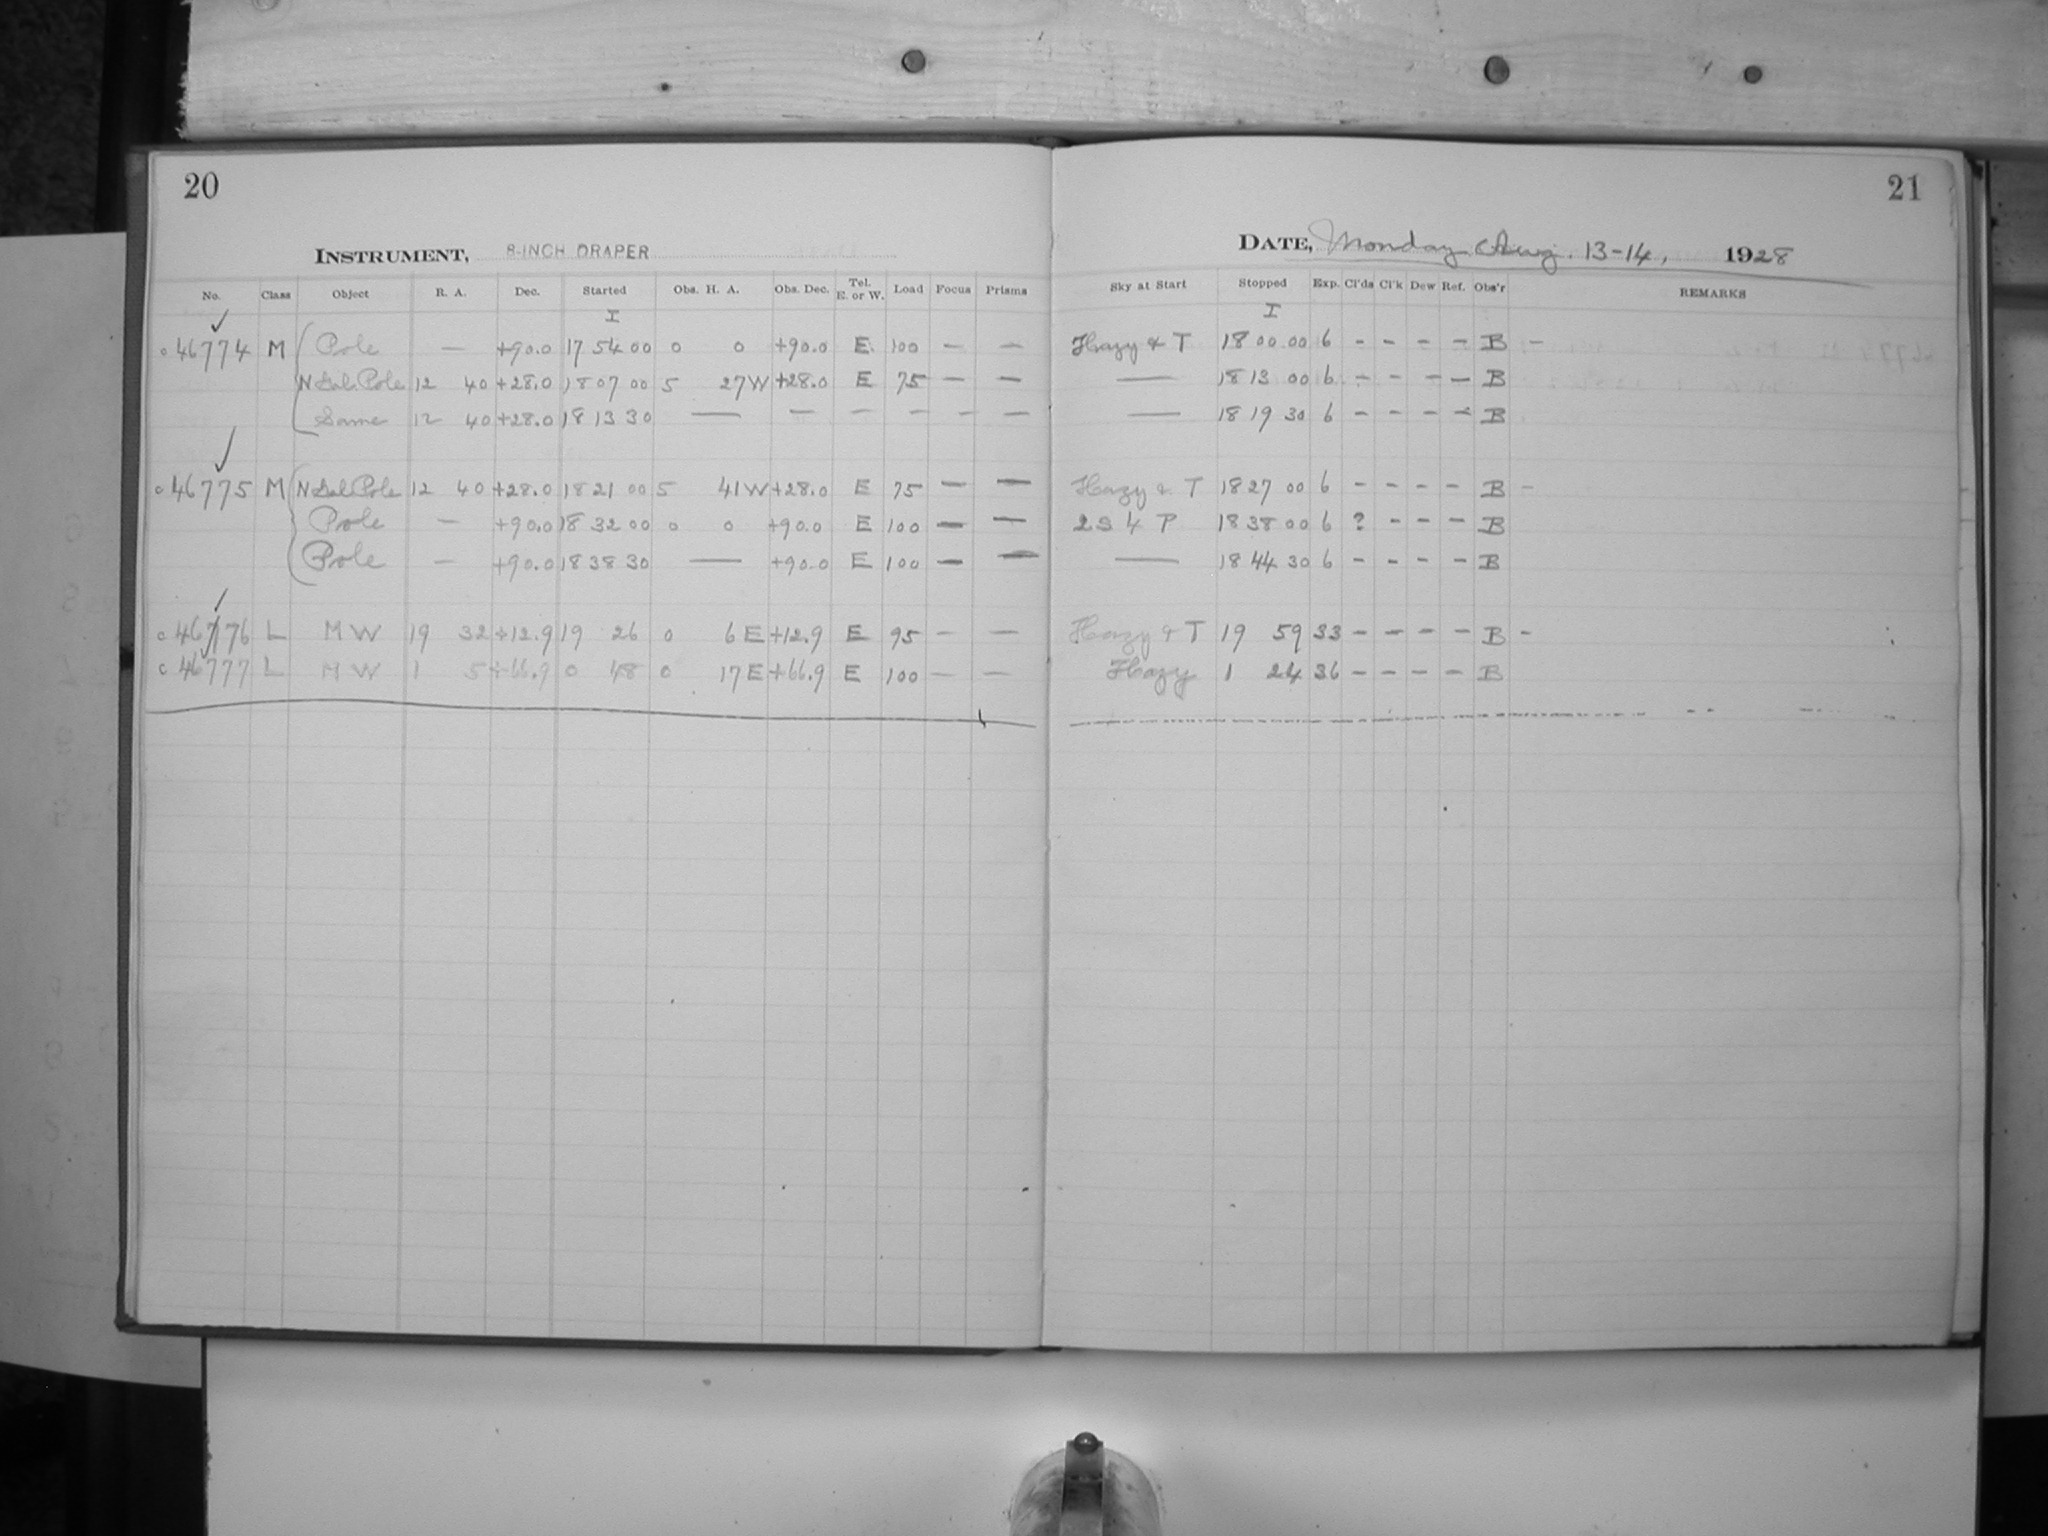 20
INSTRUMENT, 8-INCH DRAPER
No. Class Object R. A. Dec. Started Obs. H. A. Obs. Dec. Tel. E. or W. Load Focus Prisms
I
c 46774 M Pole — +90.0 17 54 00 0 0 +90.0 E 100 — —
N Gal. Pole 12 40 +28.0 18 07 00 5 27 W +28.0 E 75 — —
Same 12 40 +28.0 18 13 30 — — — — — —
c 46775 M N Gal Pole 12 40 +28.0 18 21 00 5 41 W +28.0 E 75 — —
Pole — +90.0 18 32 00 0 0 +90.0 E 100 — —
Pole — +90.0 18 38 30 — +90.0 E 100 — —
c 46776 L M W 19 32 +12.9 19 26 0 6 E +12.9 E 95 — —
c 46777 L M W 1 5 +66.9 0 48 0 17 E +66.9 E 100 — —
21
DATE, Monday Aug. 13-14, 1928
Sky at Start Stopped Exp. Cl'ds Cl'k Dew Ref. Obs'r REMARKS
I
Hazy & T 18 00 00 6 - - - - B -
— 18 13 00 6 - - - - B
— 18 19 30 6 - - - - B
Hazy & T 18 27 00 6 - - - - B -
2 S 4 P 18 38 00 6 ? - - - B
— 18 44 30 6 - - - - B
Hazy & T 19 59 33 - - - - B -
Hazy 1 24 36 - - - - B